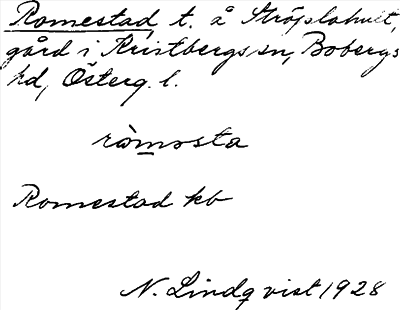 Romestad, t. å Ströplahult,
gård i Kristbergs sn, Bobergs
hd, Österg. l.
ròmosta
Romestad kb
N. Lindqvist 1928